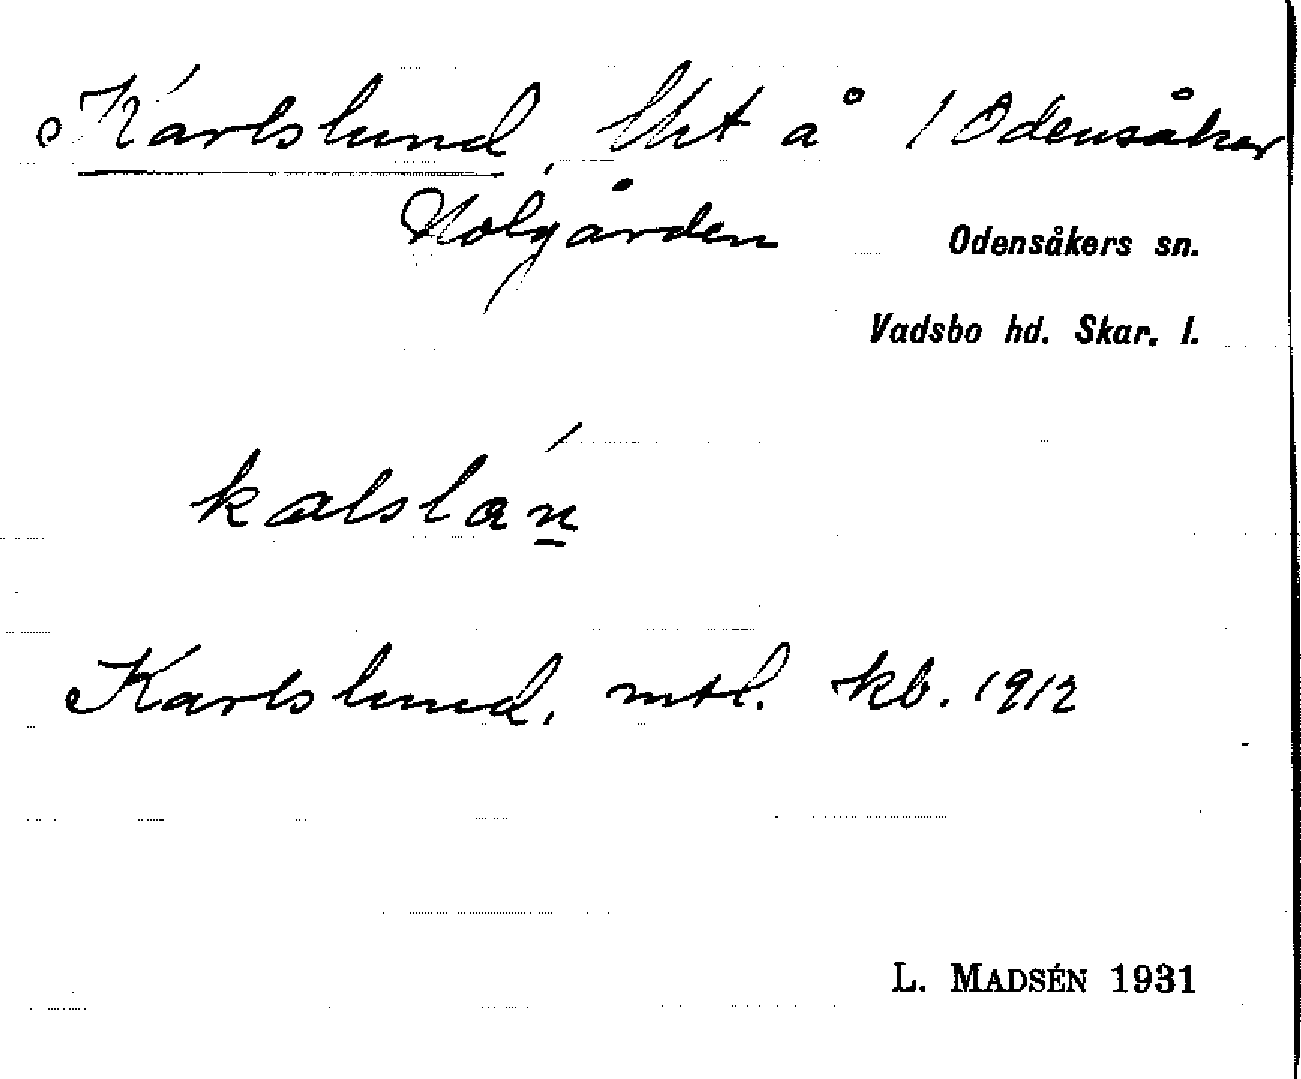 Karlslund, lht å 1 Odensåker
Holgården
Odensåkers sn.
Vadsbo hd. Skar. l.
kalslán
Karlslund, mtl. kb. 1912
L. MADSÉN 1931